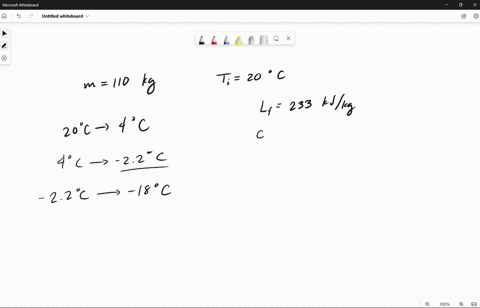 Microsoft Whiteboard
Untitled whiteboard
m = 110 kg
T₁ = 20 °C
L₁ = 233 kJ/kg
20°C → 4°C
C
4°C → -2.2°C
-2.2°C → -18°C
100%